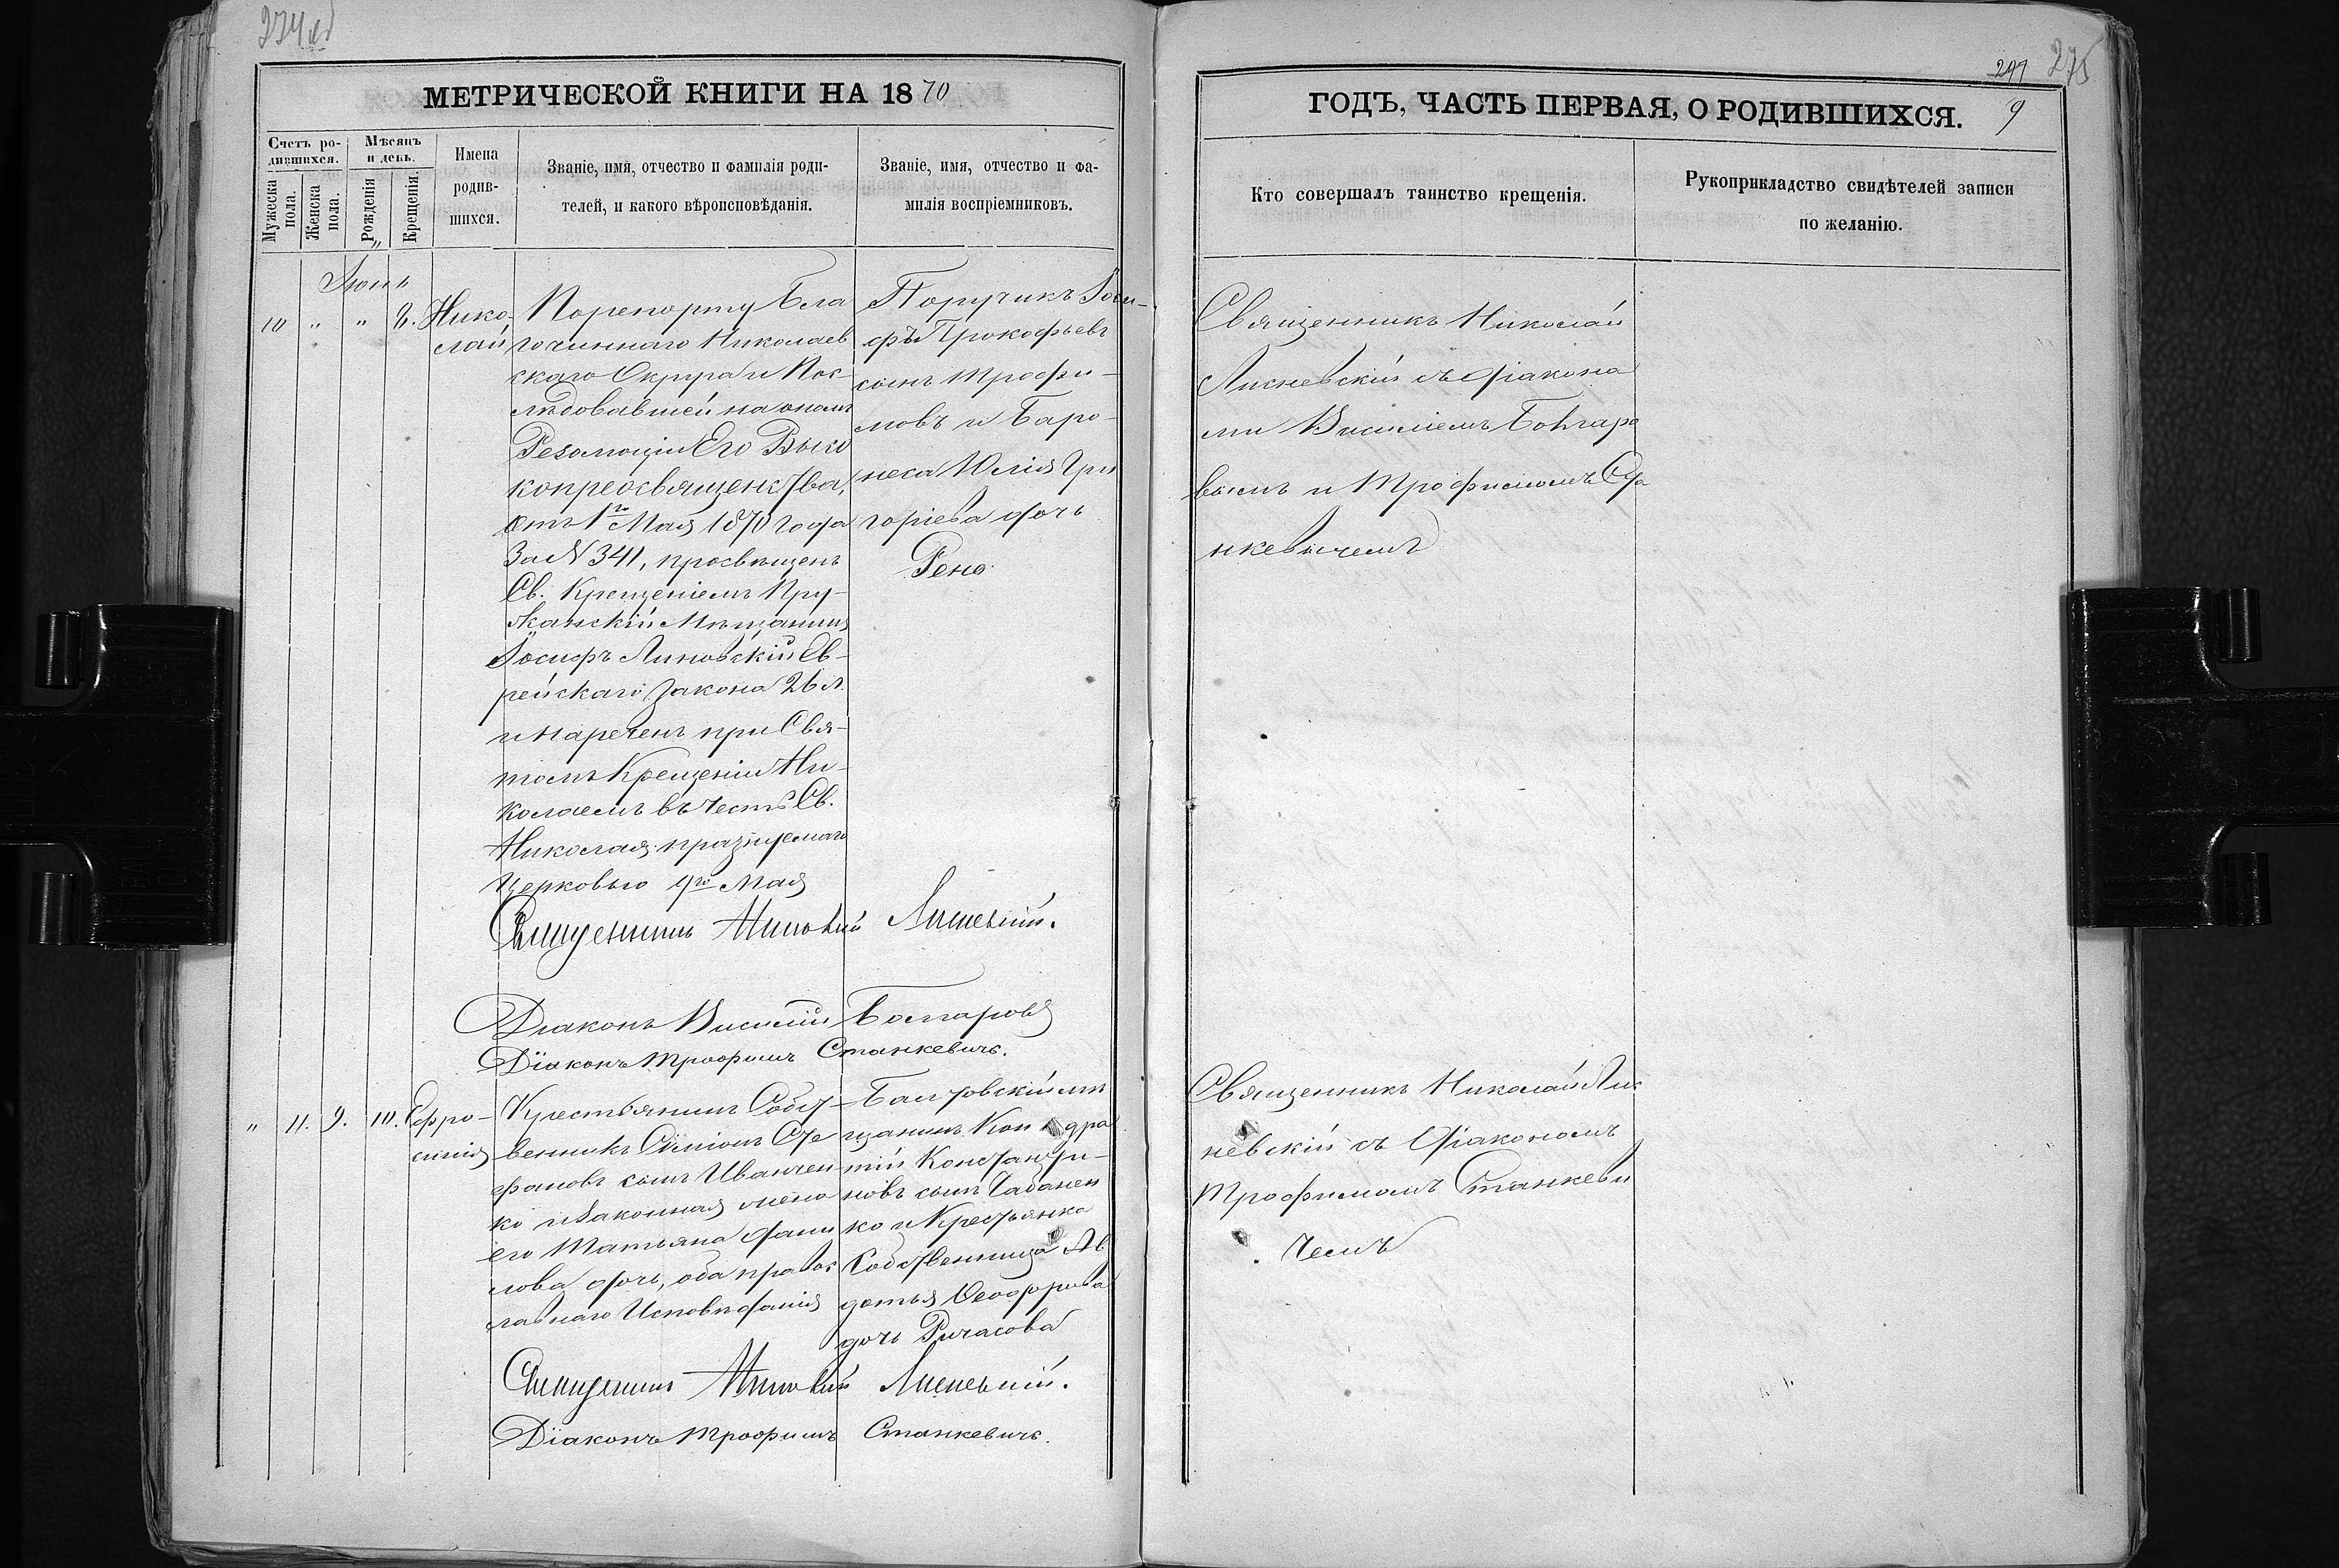 274 об
МЕТРИЧЕСКОЙ КНИГИ НА 1870
Счетъ ро-
дившихся.
Мужеска
пола.
Женска
пола.
Мѣсяцъ
и день.
Рожденія
Крещенія.
Имена
родив-
шихся.
Званіе, имя, отчество и фамилія роди-
телей, и какого вѣроисповѣданія.
Званіе, имя, отчество и фа-
милія воспріемниковъ.
Іюнь
10 " " 8.
Нико-
лай
По репорту Бла
гочиннаго Николаев
скаго Округа и Пос-
лѣдовавшей на ономъ
Резолюціи Его Высо
копреосвященства,
отъ 1го Мая 1870 года
За N 341, просвѣщенъ
Св. Крещеніемъ Пру-
жанскій Мѣщанинъ
Іосифъ Линовскій Ев-
рейскаго Закона 26 л.
и нареченъ при Свя-
томъ Крещеніи Ни-
колаемъ въ честь Св.
Николая празнуемаго
Церковью 9го Мая
Поручикъ Іоси-
фъ Прокофьевъ
сынъ Трофи-
мовъ и Баро-
неса Юлія Гри
горіева дочь
Рено
Священникъ Николай Лисневскій.
Діаконъ Василій Болгаровъ
Діаконъ Трофимъ Станкевичъ.
" 11. 9. 10.
Ефро-
синія
Крестьянинъ Собст-
венникъ Симіонъ Сте
фановъ сынъ Иванчен
ко и Законная жена
его Татьяна Дани
лова дочь, оба правос
лавнаго Исповѣданія
Балтовскій мѣ
щанинъ Кондра
тій Константи-
новъ сынъ Чабанен
ко и Крестьянка
Собственница Ав
дотья Феодорова
дочь Ричасова
Священникъ Николай Лисневскій.
Діаконъ Трофимъ Станкевичъ.
297 275
ГОДЪ, ЧАСТЬ ПЕРВАЯ, О РОДИВШИХСЯ. 9
Кто совершалъ таинство крещенія.
Рукоприкладство свидѣтелей записи
по желанію.
Священникъ Николай
Лисневскій съ Діакона
ми Василіемъ Болгаро
вымъ и Трофимомъ Ста
нкевичемъ
Священникъ Николай Лис
невскій съ Діакономъ
Трофимомъ Станкеви
чемъ